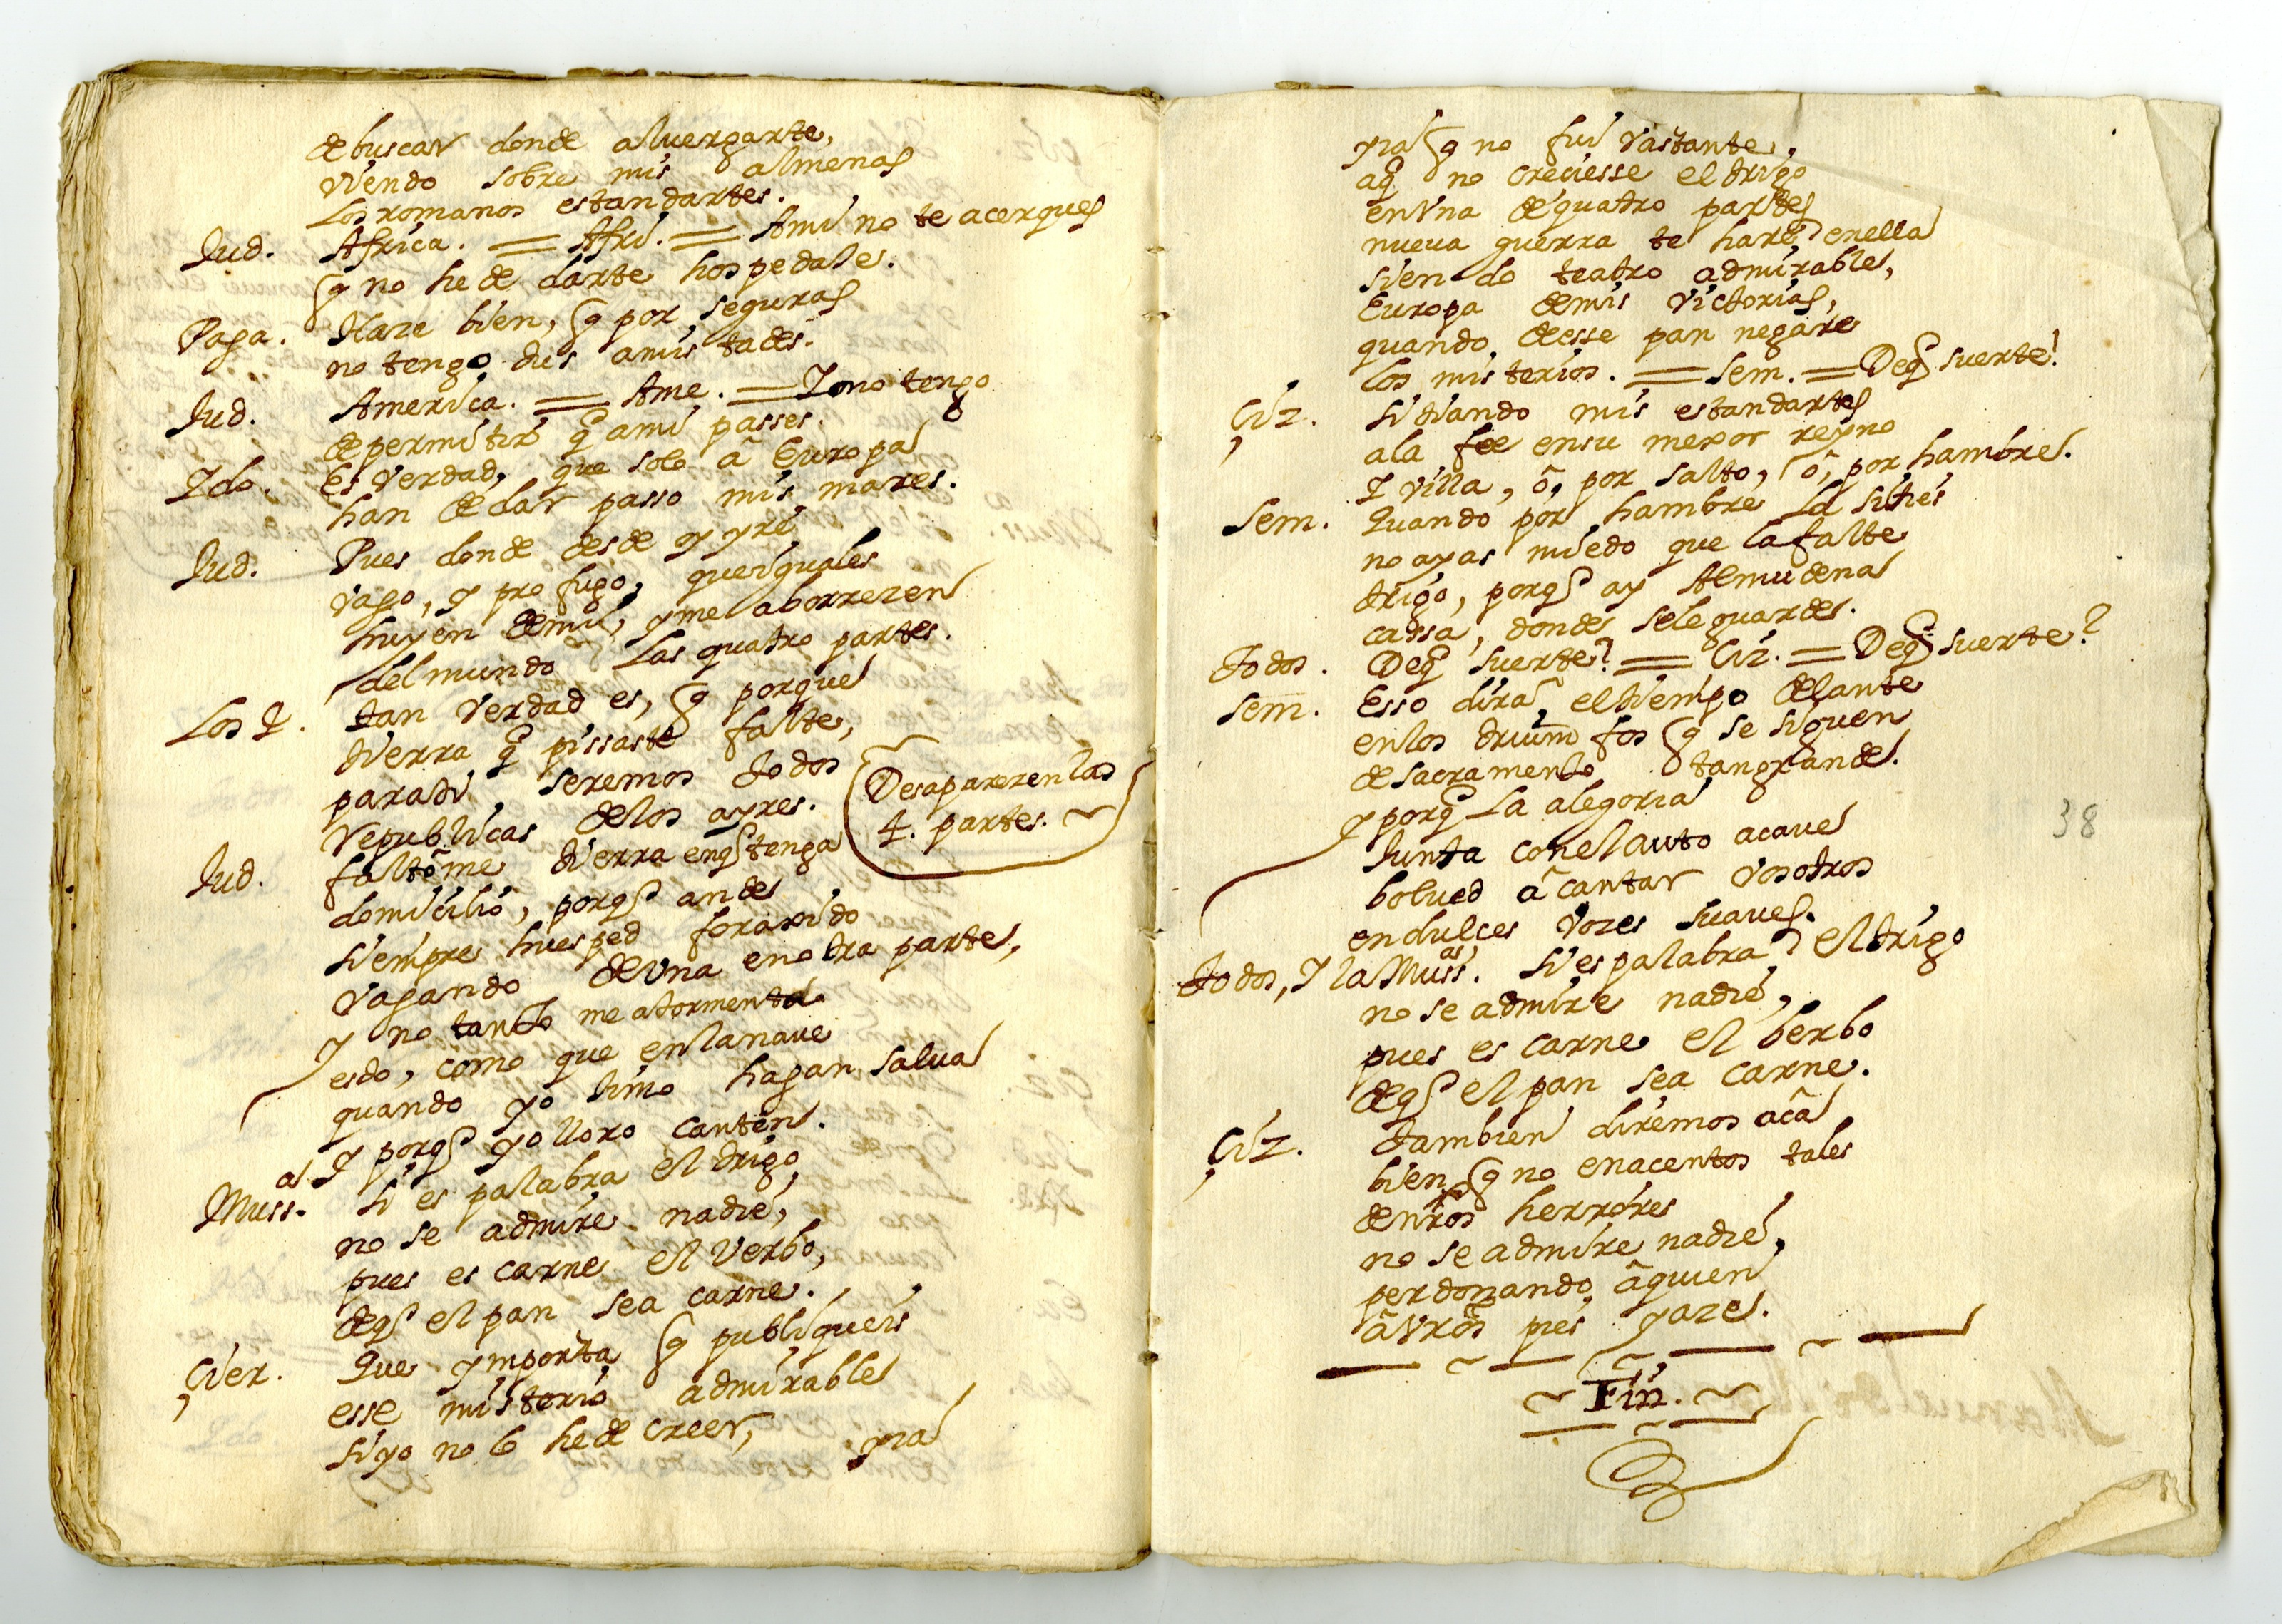 de buscar donde aluergarte,
viendo sobre mis almenas
los romanos estandartes.
Jud. Africa. = Afri. = Ami no te acerques
q no he de darte hospedale.
Paga. Haze bien, q por seguras
no tengo dus amistades.
Jud. America. = Ame. = Yo no tengo
de permitir q ami passes.
Ydo. Es verdad, que solo â Europa
han de dar passo mis mares.
Jud. Pues donde desde oy yrè
vago, y profugo, que iguales
huyen demi, y me aborrezen
del mundo las quatro partes.
Los 4. tan verdad es, q porque
tierra q pissaste falte,
parati, seremos todos
Republicas delos ayres.
Desaparezen las
4. partes.
Jud. faltôme tierra enq tenga
domicilio, porq ande
siempre huesped foraxido
vagando de vna en otra parte,
Y no tanto me atormenta
esto, como que enlanaue
quando yo Jimo hagan salua
Y porq yo lloro canten.
Mussa. Si es palabra el trigo,
no se admire nadie,
pues es carne el Verbo,
deq el pan sea carne.
Cier. Que ymporta q publiqueis
esse misterio admirable
si yo no lo he de creer,
yia
yia q no fui vastante,
aq no creciesse el trigo
en vna de quatro partes
nueua guerra te harè, enella
siendo teatro admirable,
Europa demis victorias,
quando deesse pan negare
los misterios. = Sem. = Deq suerte!
Ciz. Sitiando mis estandartes
ala fee ensu mexor reyno
Y villa, ô, por salto, ô, por hambre.
Sem. Quando por hambre la sities
no ayas miedo que la falte
trigo, porq ay Almudena
cassa, donde sele guarde.
Todos. Deq suerte? = Ciz. = Deq suerte?
Sem. Esso dirâ, el tiempo delante
enlos triumfos q se siguen
de sacramento tangrande.
Y porq la alegoria
Junta conel auto acaue
bolued â cantar vosotros
en dulces vozes suaues.
38
Todos, Y la Mussa. Si es palabra el trigo
no se admire nadie,
pues es carne el berbo
deq el pan sea carne.
Ciz. Tambien diremos acâ
bien q no enacentos tales
denros herrores
no se admire nadie,
perdonando â quien
â vros pies yaze.
Fin.